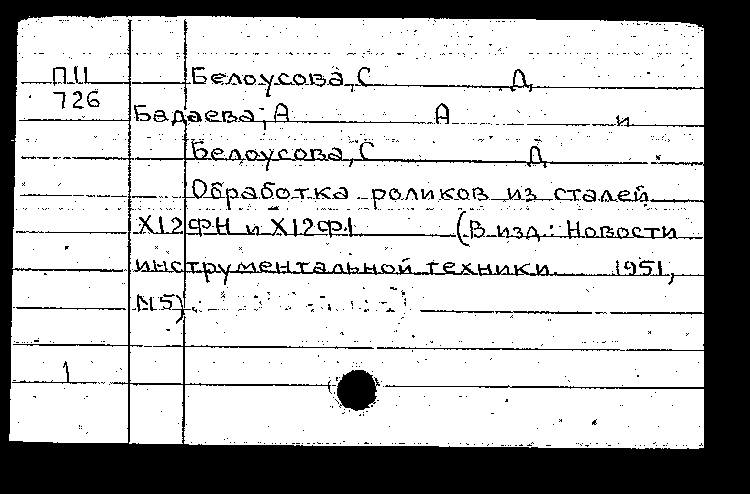 П.11 Белоусова, С Д.
726 Бадаева, А А и
Белоусова, С Д.
Обработка роликов из сталей
Х12ФН и Х12Ф1 (В изд.: Новости
инструментальной техники. 1951,
№5).
1